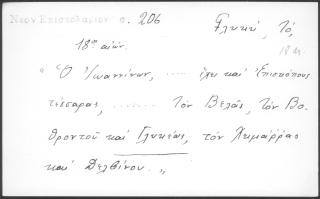 Νεον Επιστολαριον σ. 206
Γλυκύ, Τό,
18ος αιών.
18 αι.
"Ὁ Ἰωαννίνων, .... ἔχει καὶ Ἐπισκόπους
τέσσαρας, ....... Τὸν Βελᾶς, τὸν Βο-
θροντοῦ καὶ Γλυκέως, τὸν Χιμάρρας
καὶ Δελβίνου.„